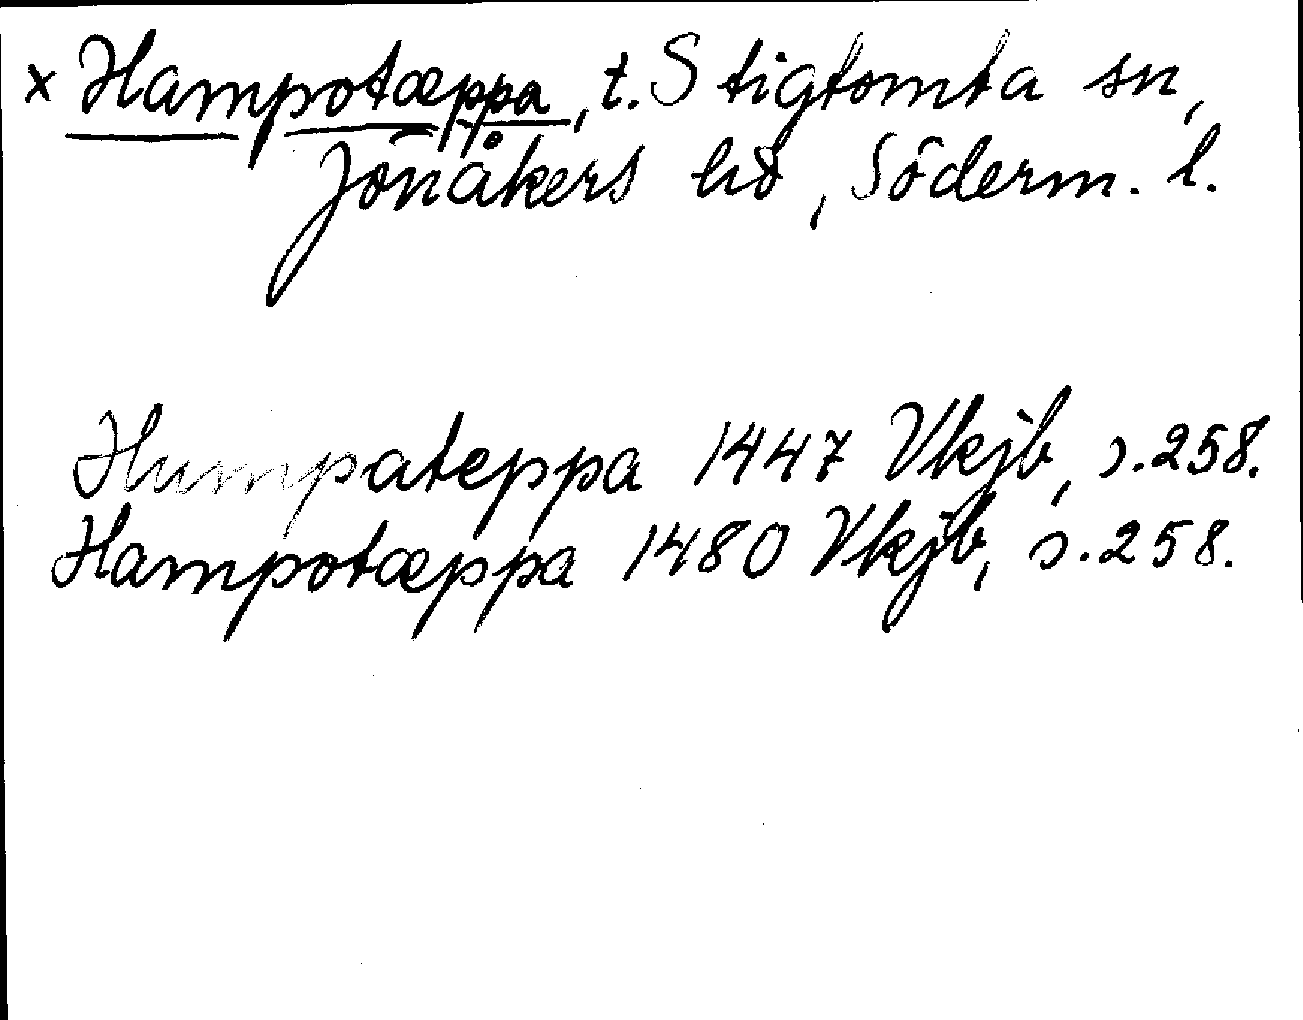 x Hampotæppa, t. Stigtomta sn,
Jönåkers hd, Söderm. l.
Humpateppa 1447 Vkjb, s. 258.
Hampotæppa 1480 Vkjb, s. 258.